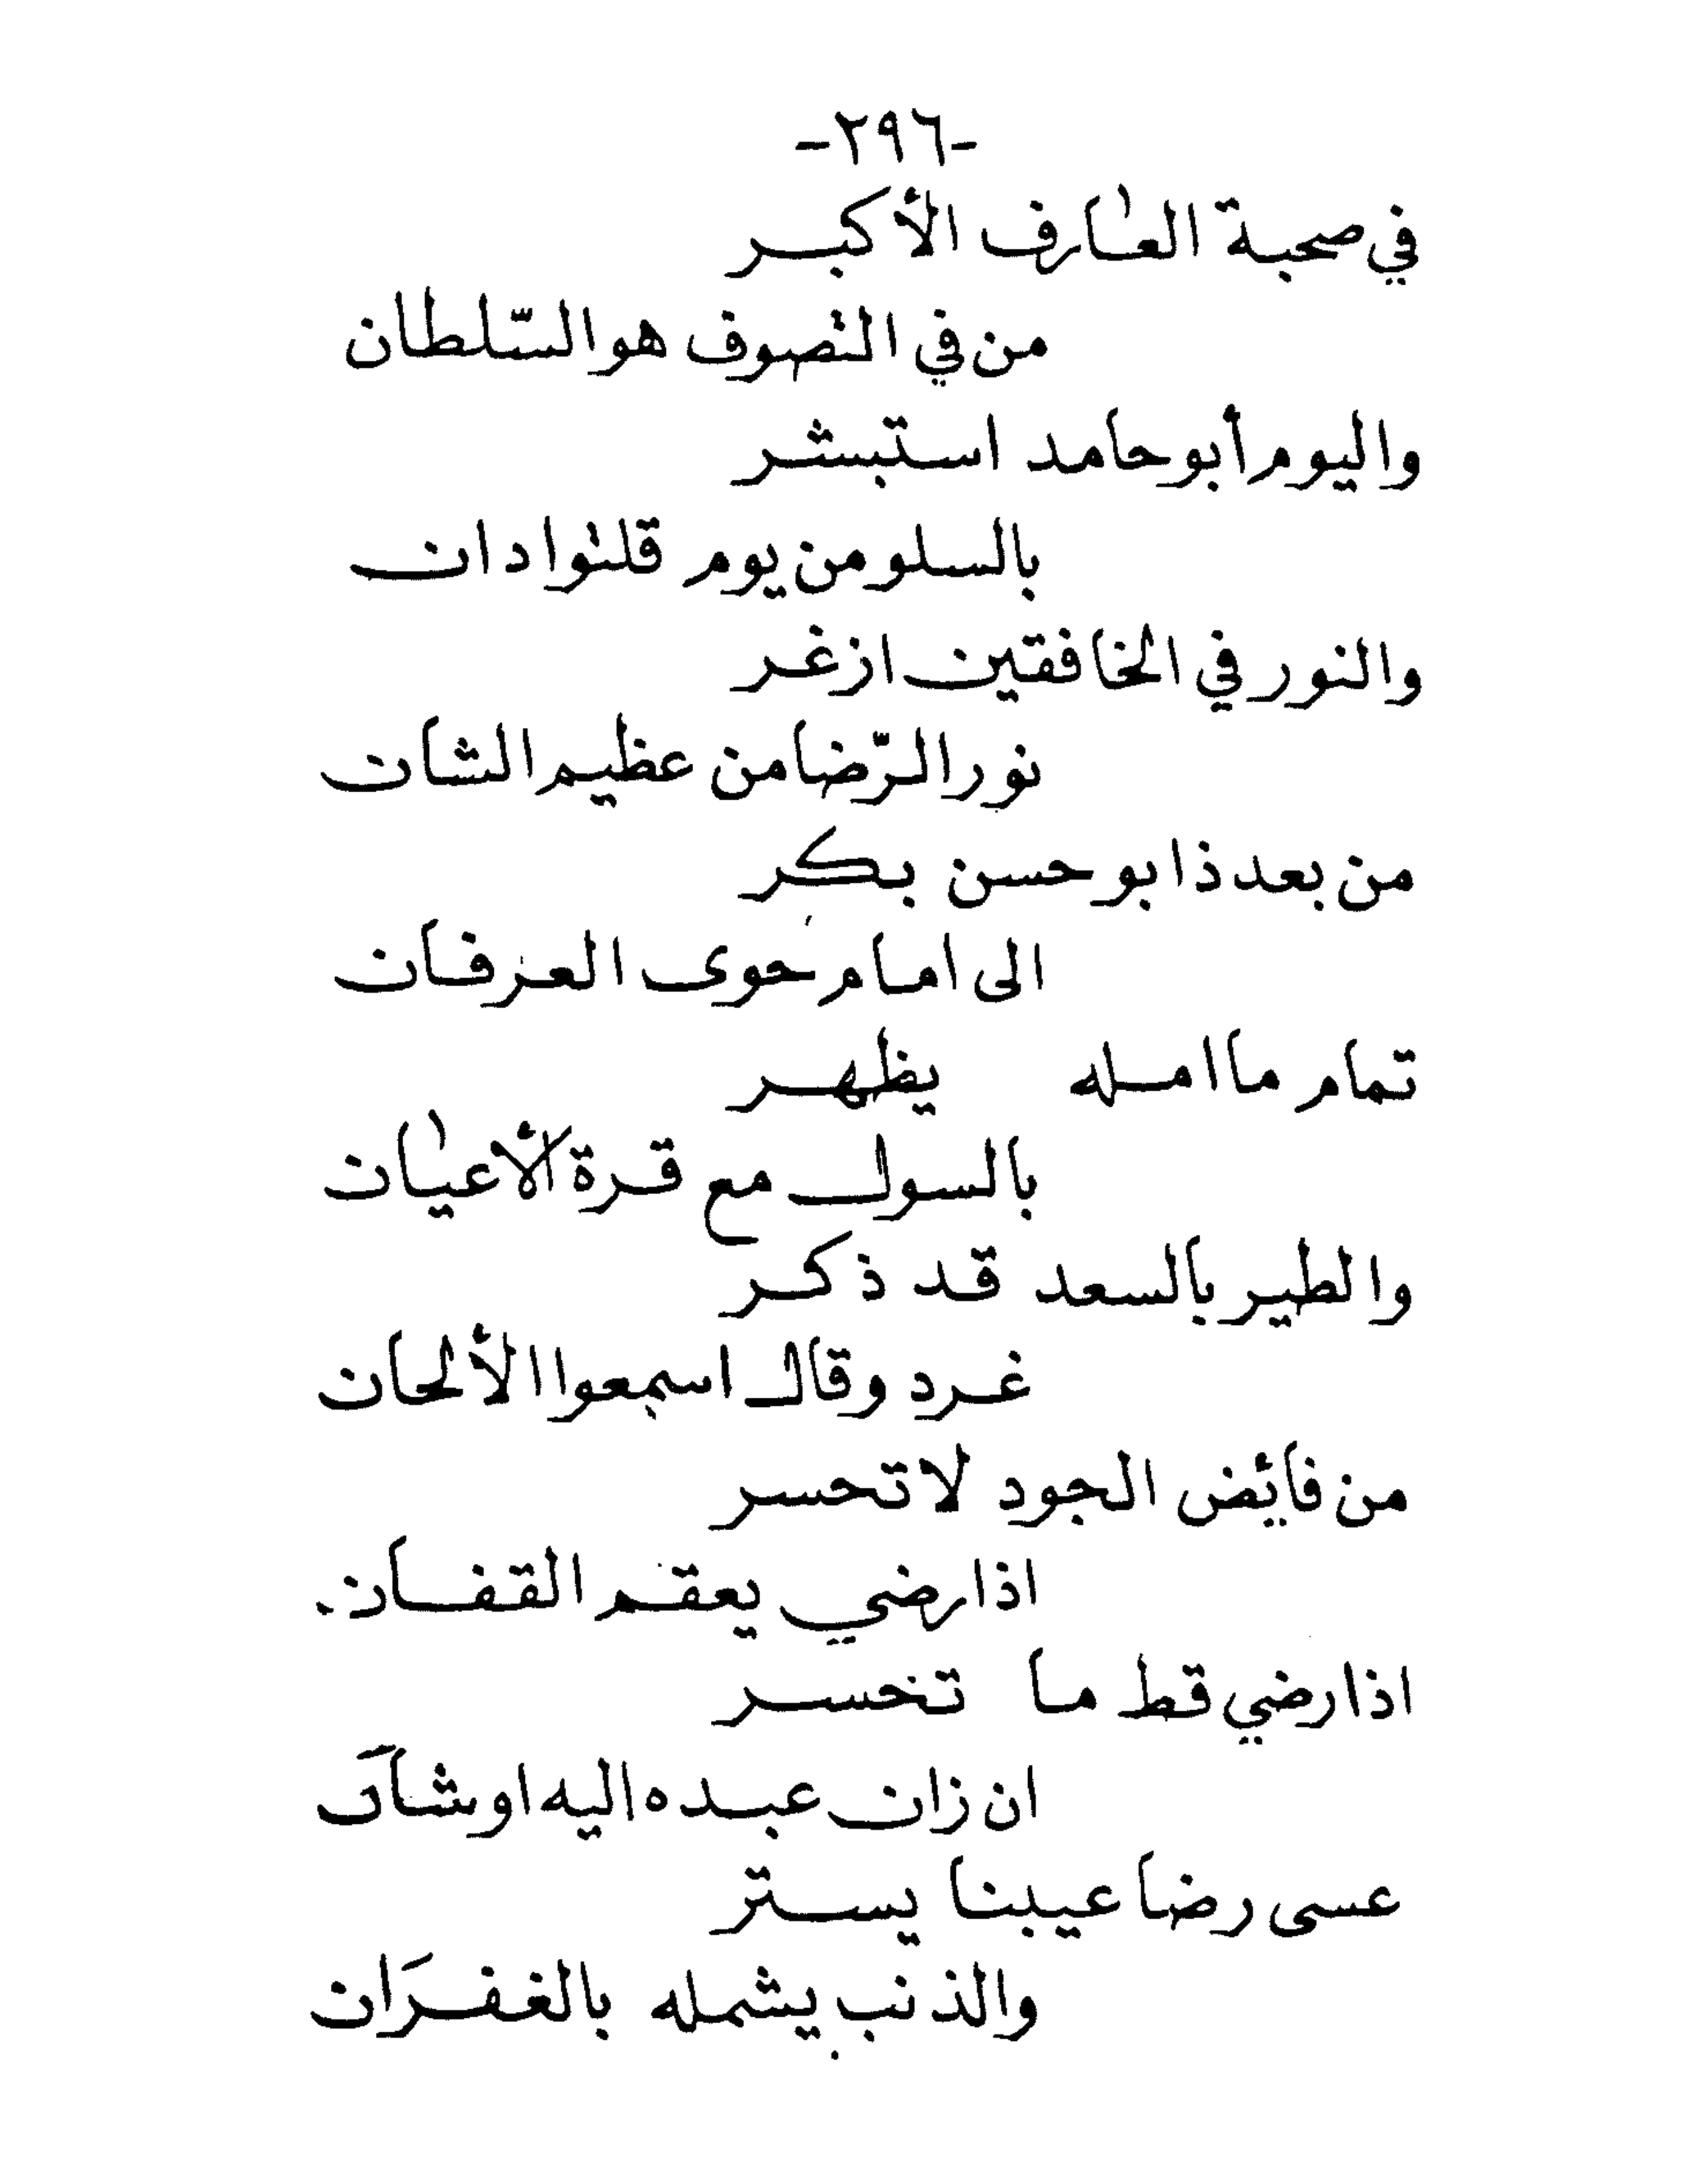 -٢٩٦-
في صحبة العارف الأكبر
من في التصوف هو السّلطان
واليوم أبو حامد استبشر
بالسلو من يوم قلتوا دان
والنور في الخافقين ازغر
نور الرّضا من عظيم الشان
من بعد ذا بو حسن بكر
الى امام حوى العرفان
تمام ما امله يظهر
بالسول مع قرة الأعيان
والطير بالسعد قد ذكر
غرد وقال اسمعوا الألحان
من فائض الجود لا تحسر
اذا رضي يعقم القفان
اذا رضي قط ما تخسر
ان زان عبده اليه اوشان
عسى رضا عيبنا يستر
والذنب يشمله بالغفرَان